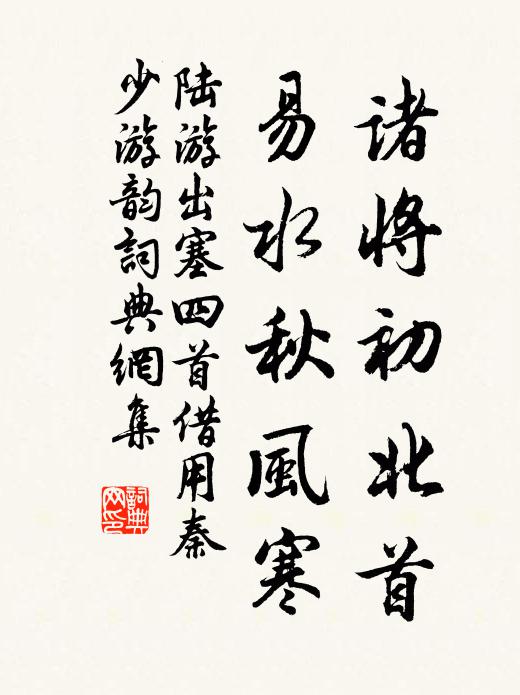 諸將初北首
易水秋風寒
陆游出塞四首借用秦
少游韵詞典網集
詞典
网印